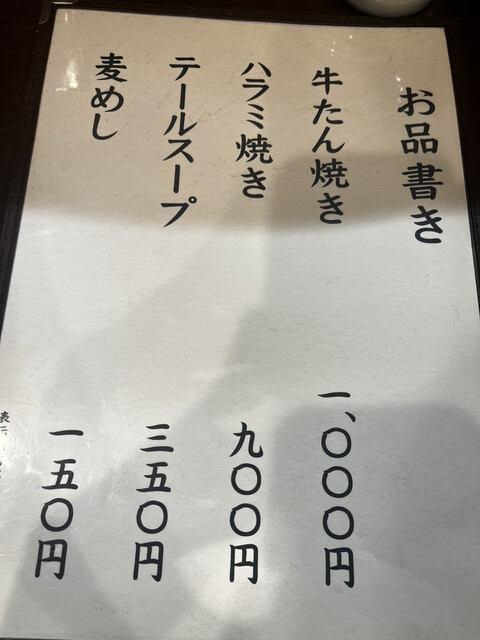 お品書き
牛たん焼き 一、〇〇〇円
ハラミ焼き 九〇〇円
テールスープ 三五〇円
麦めし 一五〇円